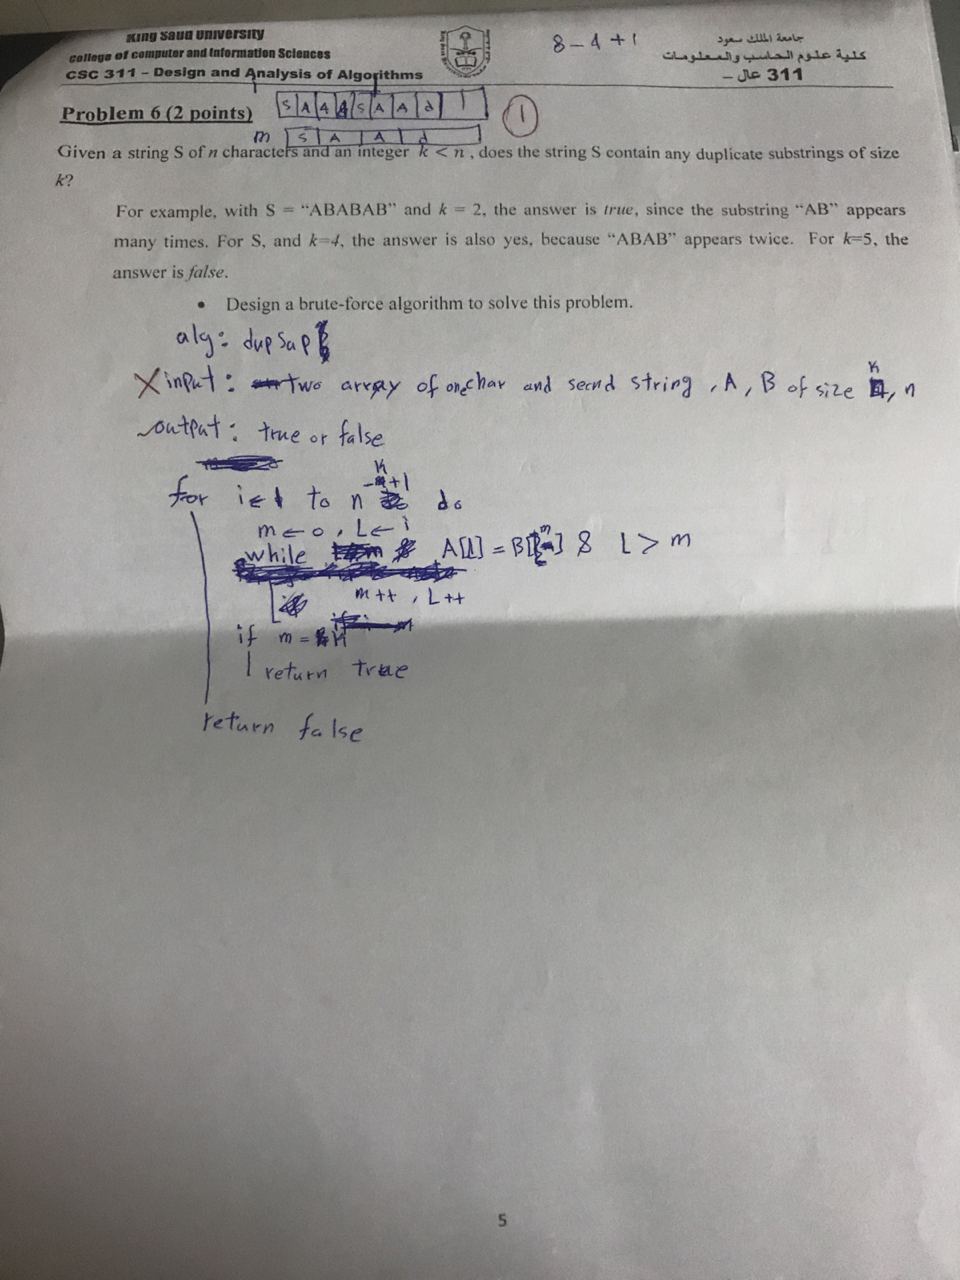 King Saud University
College of Computer and Information Sciences
CSC 311 – Design and Analysis of Algorithms
8 - 4 + 1
جامعة الملك سعود
كلية علوم الحاسب والمعلومات
311 عال –
Problem 6 (2 points)
S A A A S A A d
1
m S A A d
Given a string S of n characters and an integer k < n , does the string S contain any duplicate substrings of size
k?
For example, with S = “ABABAB” and k = 2, the answer is true, since the substring “AB” appears
many times. For S, and k=4, the answer is also yes, because “ABAB” appears twice. For k=5, the
answer is false.
• Design a brute-force algorithm to solve this problem.
alg: dupSap
input: two array of one char and secnd string , A , B of size K , n
output: true or false
for i ← 1 to n -K+1 do
m ← 0 , L ← i
while A[L] = B[m] & L > m
m++ , L++
if m = K
return true
return false
5